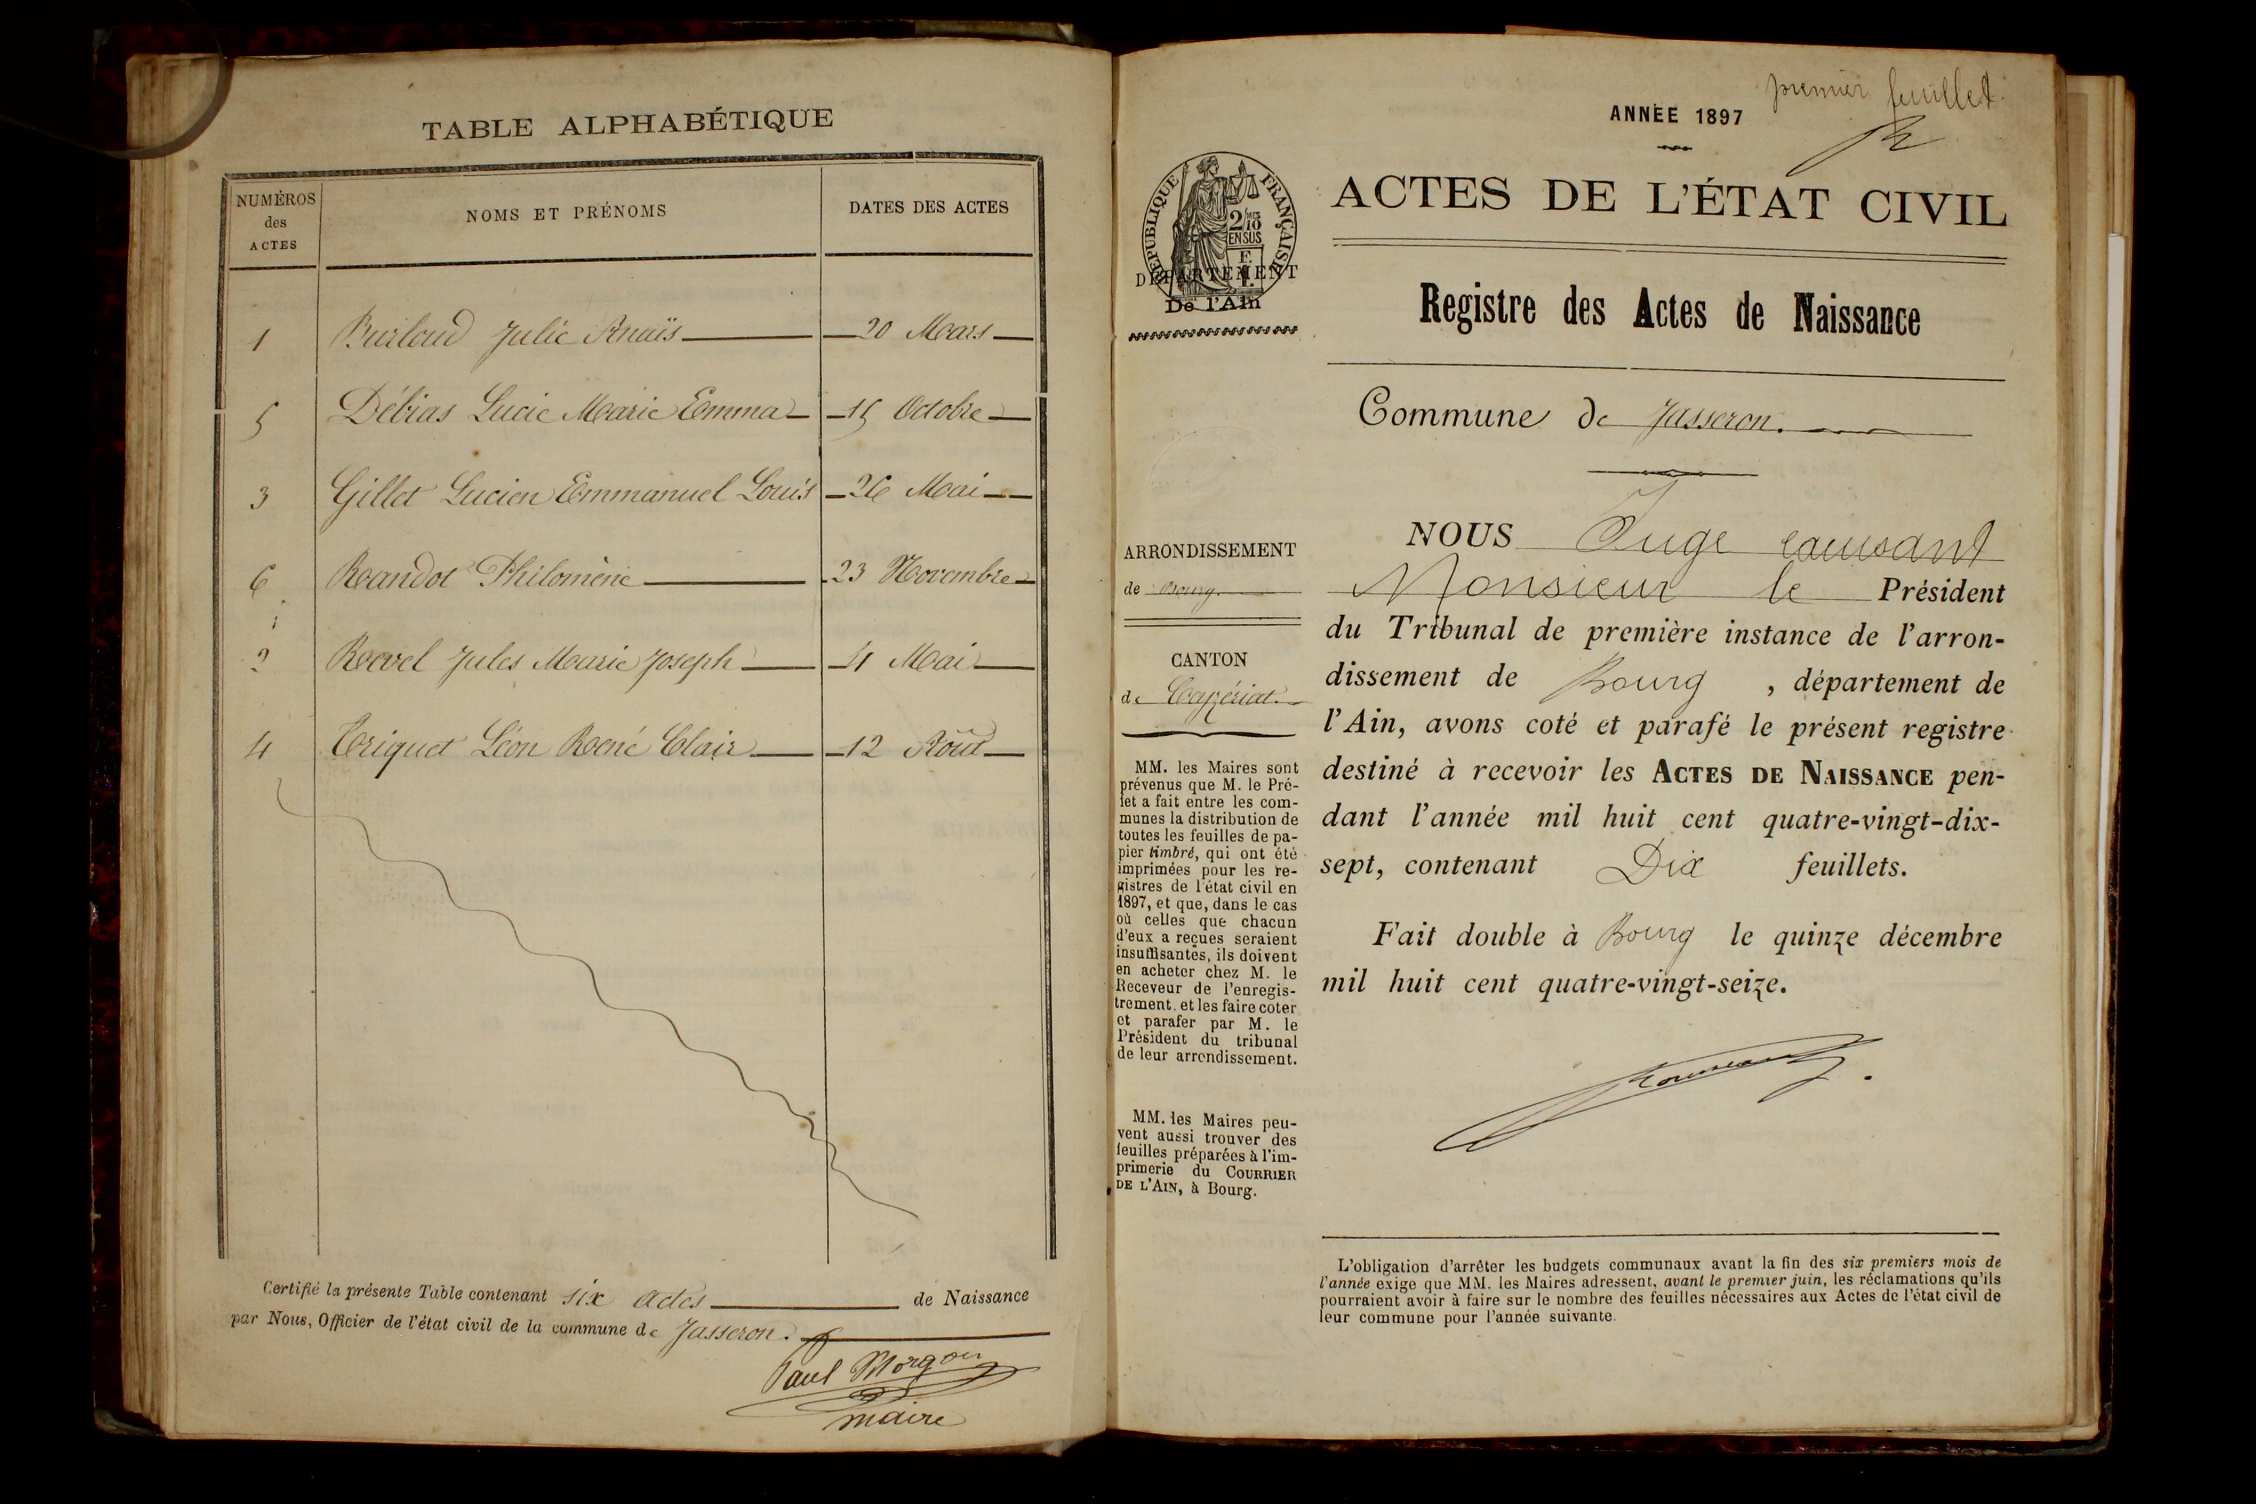 TABLE ALPHABÉTIQUE
NUMÉROS
des
ACTES
NOMS ET PRÉNOMS
DATES DES ACTES
1 Burloud Julie Anaïs 20 Mars
5 Débias Lucie Marie Emma 15 Octobre
3 Gillet Lucien Emmanuel Louis 26 Mai
6 Randot Philomène 23 Novembre
2 Revel Jules Marie Joseph 4 Mai
4 Triquet Léon René Clair 12 Août
Certifié la présente Table contenant six actes de Naissance
par Nous, Officier de l'état civil de la commune de Jasseron.
Paul Morgon
maire
premier feuillet
ANNÉE 1897
RÉPUBLIQUE FRANÇAISE
2/10
EN SUS
DÉPARTEMENT
De l'Ain
ACTES DE L'ÉTAT CIVIL
Registre des Actes de Naissance
Commune de Jasseron.
ARRONDISSEMENT
de Bourg.
CANTON
de Ceyzériat.
MM. les Maires sont
prévenus que M. le Pré-
fet a fait entre les com-
munes la distribution de
toutes les feuilles de pa-
pier timbré, qui ont été
imprimées pour les re-
gistres de l'état civil en
1897, et que, dans le cas
où celles que chacun
d'eux a reçues seraient
insuffisantes, ils doivent
en acheter chez M. le
Receveur de l'enregis-
trement, et les faire coter
et parafer par M. le
Président du tribunal
de leur arrondissement.
MM. les Maires peu-
vent aussi trouver des
feuilles préparées à l'im-
primerie du COURRIER
DE L'AIN, à Bourg.
NOUS Juge causant
Monsieur le Président
du Tribunal de première instance de l'arron-
dissement de Bourg , département de
l'Ain, avons coté et parafé le présent registre
destiné à recevoir les ACTES DE NAISSANCE pen-
dant l'année mil huit cent quatre-vingt-dix-
sept, contenant Dix feuillets.
Fait double à Bourg le quinze décembre
mil huit cent quatre-vingt-seize.
L'obligation d'arrêter les budgets communaux avant la fin des six premiers mois de
l'année exige que MM. les Maires adressent, avant le premier juin, les réclamations qu'ils
pourraient avoir à faire sur le nombre des feuilles nécessaires aux Actes de l'état civil de
leur commune pour l'année suivante.